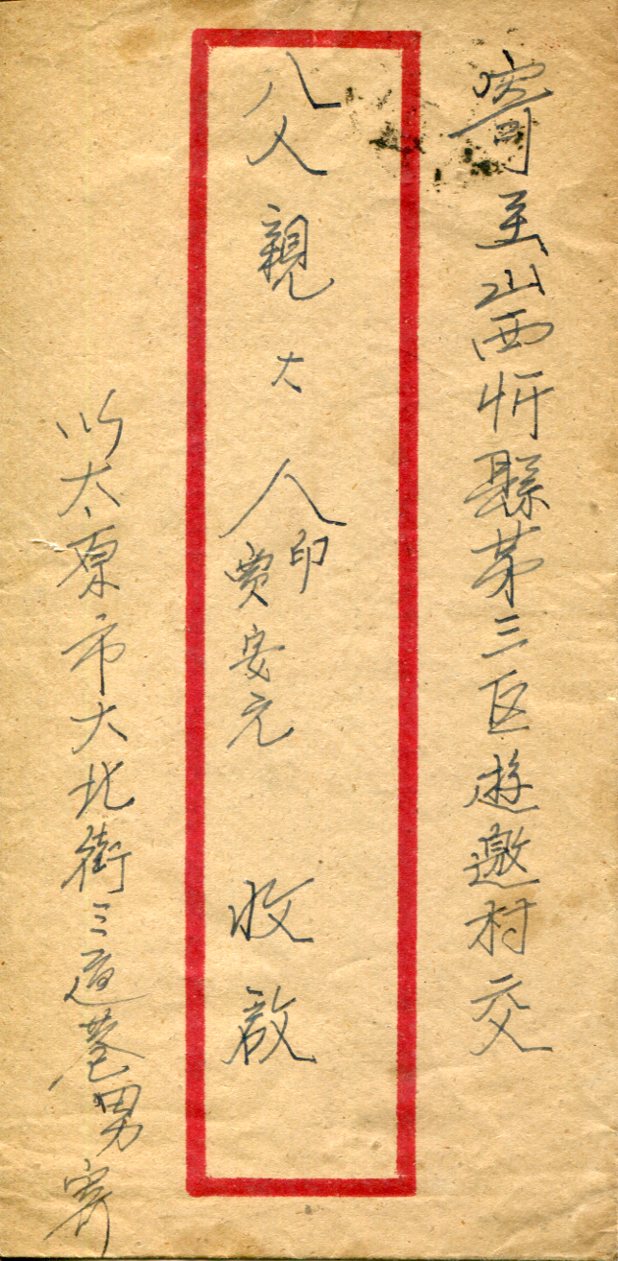 寄至山西忻縣第三区遊邀村交
父親大人印賈安元 收啟
以太原市大北街三道巷男寄